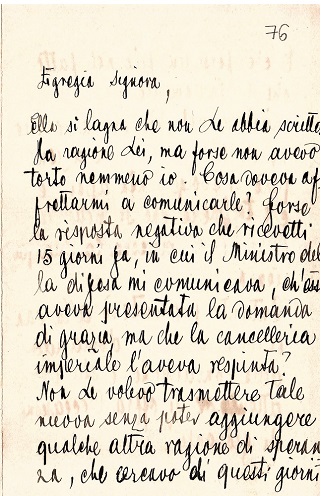 76
Egregia signora,
Ella si lagna che non Le abbia scritto,
ha ragione Lei, ma forse non avevo
torto nemmeno io. Cosa dovevo af
frettarmi a comunicarle? Forse
la risposta negativa che ricevetti
15 giorni fa, in cui il Ministro del
la difesa mi comunicava, ch'ass
aveva presentata la domanda
di grazia, ma che la cancelleria
imperiale l'aveva respinta?
Non Le volevo trasmettere tale
nuova senza poter aggiungere
qualche altra ragione di speran
za, che cercavo di questi giorni